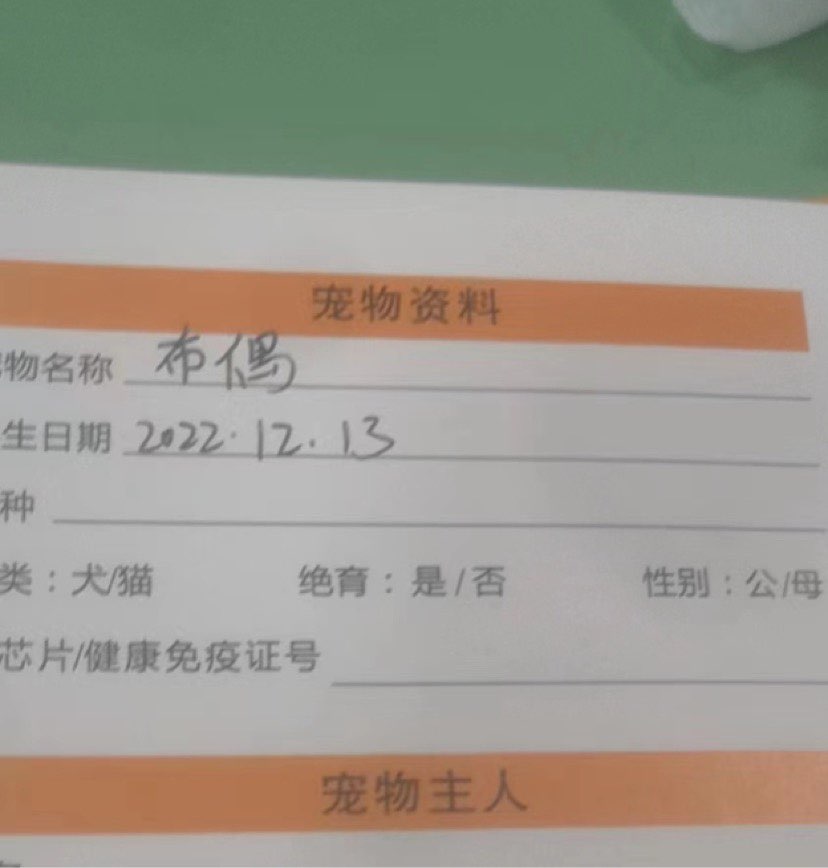 宠物资料
物名称 布偶
生日期 2022.12.13
种
类：犬/猫 绝育：是/否 性别：公/母
芯片/健康免疫证号
宠物主人